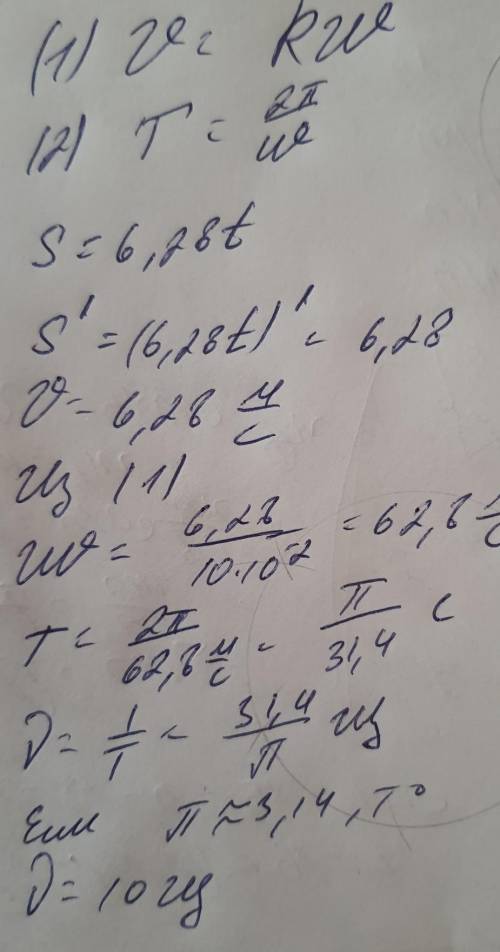 (1) v = Rω
(2) T = 2π/ω
S = 6,28t
S' = (6,28t)' = 6,28
v = 6,28 м/с
Из (1)
ω = 6,28/10·10⁻² = 62,8
T = 2π/62,8 м/с = π/31,4 с
ν = 1/T = 31,4/π Гц
Если π ≈ 3,14, то
ν = 10 Гц